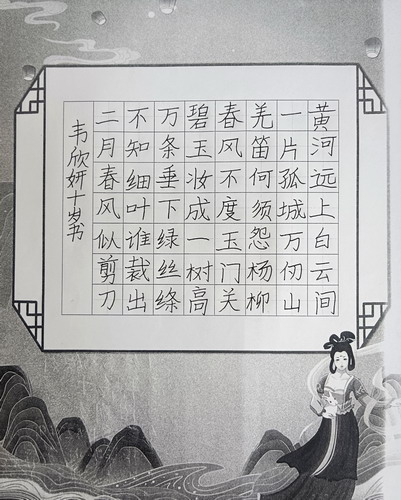 黄河远上白云间
一片孤城万仞山
羌笛何须怨杨柳
春风不度玉门关
碧玉妆成一树高
万条垂下绿丝绦
不知细叶谁裁出
二月春风似剪刀
韦欣妍十岁书